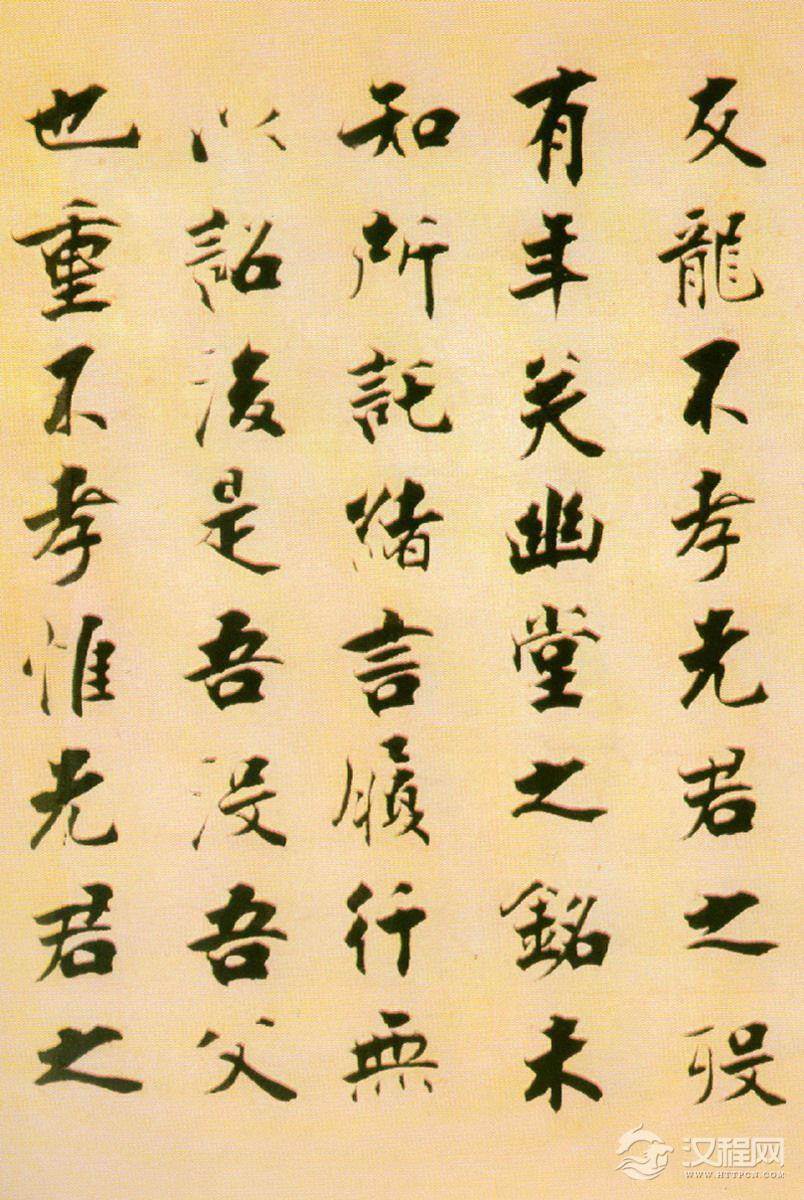 友龍不孝先君之歿
有年矣幽堂之銘未
知所託緒言履行無
以詔後是吾沒吾父
也重不孝惟先君之
汉程网
WWW.HTTPCN.COM